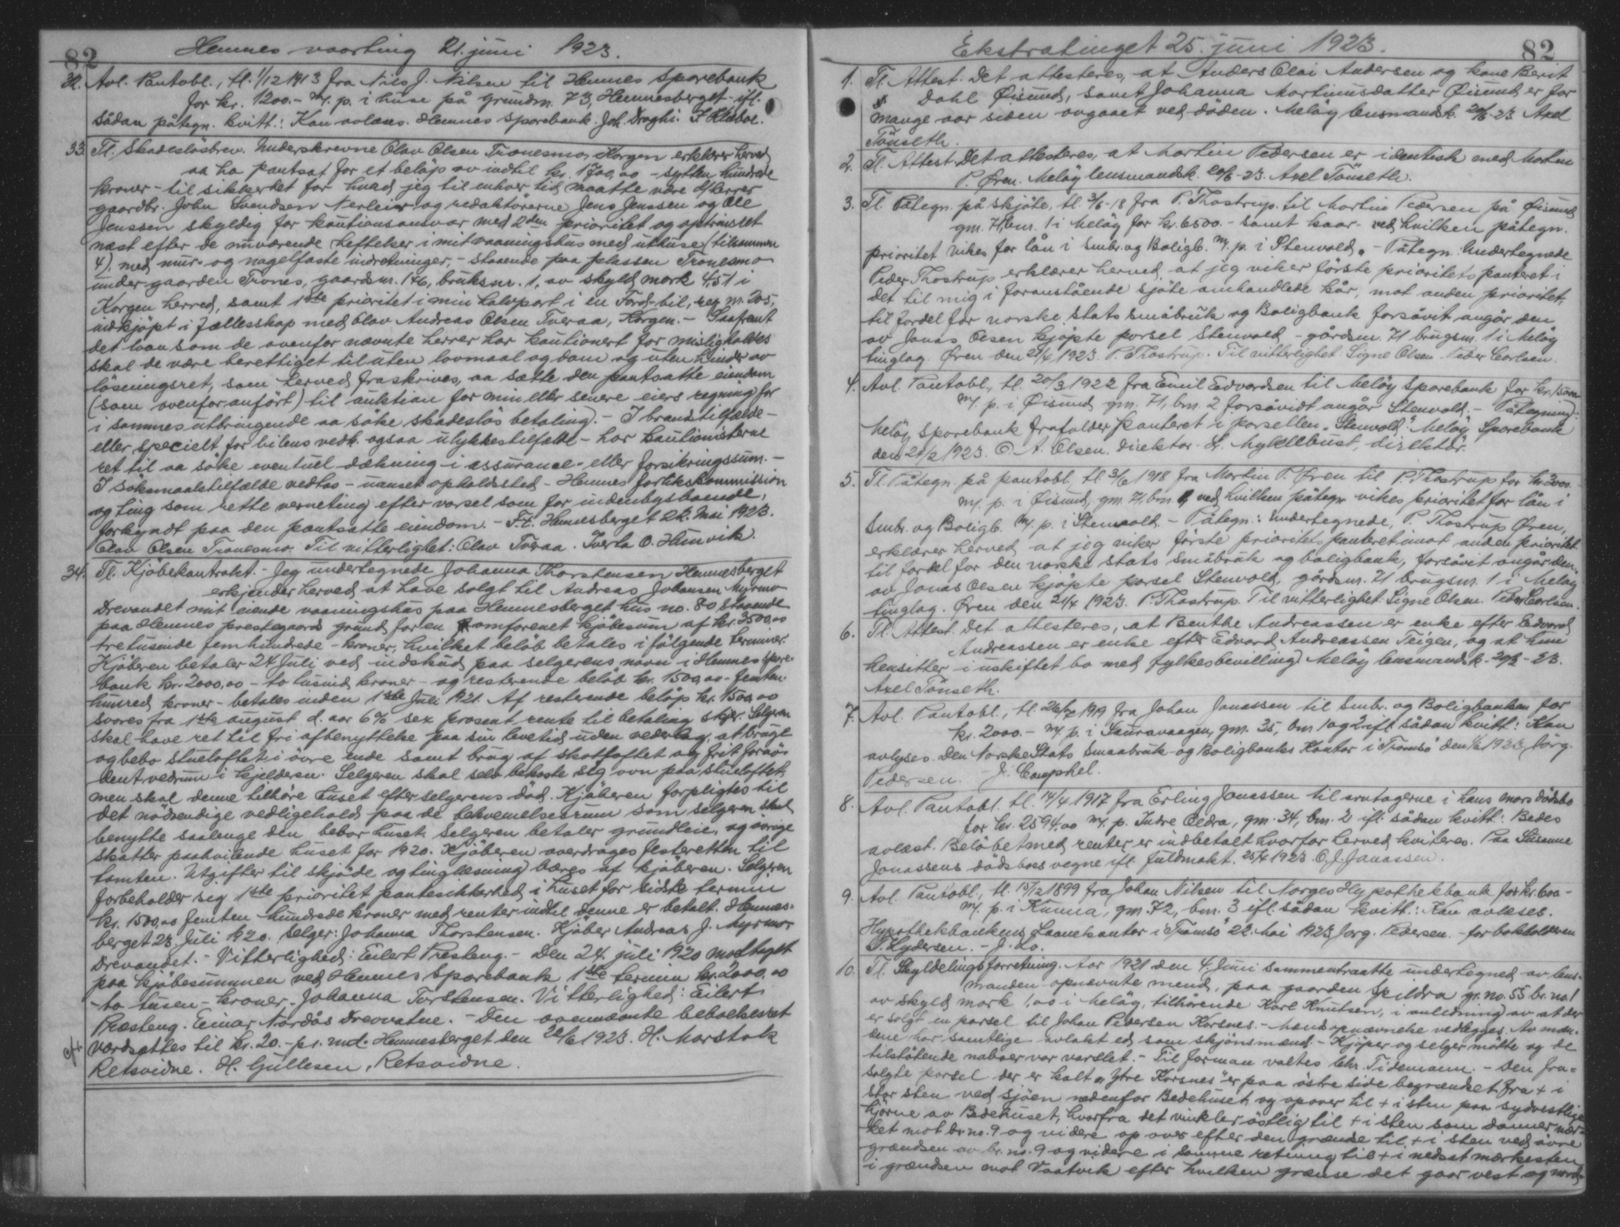 82
Hemnes vaarting 21. juni 1923.
32. Avl. Pantobl., tl. 1/12 1913 fra Nils J. Nilsen til Hemnes Sparebank
for kr. 1200.- m. p. i huse på grundnr. 73, Hemnesberget ifl.
sådan påtegn. kvitt.: Kan avlæses. Hemnes Sparebank. Joh. Draghi.
33. Tl. Skadesløsbrev. Underskrevne Olav Olsen Tronesmo, Korgen erklærer herved
aa ha pantsat for et beløp av indtil kr. 1700,00 - sytten hundrede
kroner - til sikkerhet for hvad jeg til enhver tid maatte være d'Herrer
gaardbr. John Svendsen Nerleir og redaktørerne Jens Jenssen og Ole
Jenssen skyldig for kautionsansvar med 2den prioritet og optrinsret
næst efter de nuværende heftelser i mit vaaningshus med uthuse (tilsammen
4), med mur- og nagelfaste indretninger, - staaende paa pladsen Tronesmo
under gaarden Trones, gaardsnr. 176, bruksnr. 1, av skyld mark 4,51 i
Korgen herred, samt 1ste prioritet i min halvpart i en Ford-bil, reg. nr. 205,
indkjøpt i fællesskap med Olav Andreas Olsen Tveraa, Korgen. - Saafremt
det laan som de ovenfor nævnte herrer har kautionert for misligholdes
skal de være berettiget til uten lovmaal og dom og uten hinder av
løsningsret, som herved fraskrives, aa sætte den pantsatte eiendom
(som ovenfor anført) til auktion for min eller senere eiers regning for
i sammes utbringende aa søke skadesløs betaling. - I brandtilfælde -
eller specielt for bilens vedk. ogsaa ulykkestilfælde - har kautionisterne
ret til aa søke eventuel dækning i assurance- eller forsikringssum. -
I søksmaalstilfælde vedtas - uanset opholdssted - Hemnes forlikskommission
og ting som rette verneting efter varsel som for indenbygsboende,
forkyndt paa den pantsatte eiendom. - Ft. Hemnesberget 22. Mai 1923.
Olav Olsen Tronesmo. Til vitterlighet: Olav Tveraa. O. Hemvik.
34. Tl. Kjøbekontrakt. - Jeg undertegnede Johanna Thorstensen Hemnesberget
erkjender herved at have solgt til Andreas Johansen Myrmo
Drevandet mit eiende vaaningshus paa Hemnesberget hus no. 80 staaende
paa Hemnes prestegaards grund for en omforenet kjøbesum af kr. 3500,00
tretusinde femhundrede - kroner, hvilket beløb betales i følgende terminer.
Kjøberen betaler 24 Juli ved indskud paa selgerens navn i Hemnes Spare-
bank kr. 2000,00 - to tusind kroner - og resterende beløb kr. 1500,00 - femten
hundred kroner - betales inden 1ste Juli 1921. Af resterende beløp kr. 1500,00
svares fra 1ste august d. aar 6% sex prosent rente til betaling sker. Selgeren
skal have ret til fri afbenyttelse paa sin levetid uden vederlag, at bruge
og bebo stueloftet i øvre ende samt brug af skotloftet og frit for sin
del vedrum i kjelderen. Selgeren skal selv bekoste sig ovn paa stueloftet,
men skal denne tilhøre huset efter selgerens død. Kjøberen forpligtes til
det nødvendige vedligehold paa de bekvemelsesrum som selgeren skal
benytte saalenge den bebor huset. Selgeren betaler grundleie, og øvrige
skatter paahvilende huset for 1920. Kjøberen overdrages festeretten til
tomten. Utgifter til skjøde og tinglæsning bæres af kjøberen. Selgeren
forbeholder sig 1ste prioritet pantesikkerhed i huset for sidste termin
kr. 1500,00 femten hundrede kroner med renter indtil denne er betalt. Hemnes-
berget 28. Juli 1920. Selger: Johanna Thorstensen. Kjøber Andreas J. Myrmo
Drevandet. - Vitterlighed: Eilert Presteng. - Den 24. juli 1920 modtaget
paa kjøbesummen ved Hemnes Sparebank 1ste termin kr. 2000,00
- to tusen - kroner. Johanna Torstensen. Vitterlighed: Eilert
Præsteng. Einar Nordås Drevatne. - Den ovennævnte beboelsesret
værdsættes til kr. 20.- pr. md. Hemnesberget den 20/6 1923. H. Marstok
Retsvidne. H. Gullesen, Retsvidne.
Ekstratinget 25. juni 1923.
82
1. Tl. Attest. Det attesteres, at Anders Olai Andersen og kone Berit
Dahl Øisund, samt Johanna Mortinusdatter Øisund er for
mange aar siden avgaaet ved døden. Meløy lensmandsk. 20/6-23. Axel
Tönseth.
2. Tl. Attest. Det attesteres, at Martin Pedersen er identisk med Martin
P. Øren. Meløy lensmandsk. 20/6-23. Axel Tönseth.
3. Tl. Påtegn. på skjøte, tl. 3/6-18 fra P. Thostrup til Martin Pedersen på Øisund
gm. 71, bnr. 1 i Meløy for kr. 6500.- samt kaar - ved hvilken påtegn.
prioritet vikes for lån i Småbr. og Boligb. m. p. i Stenvold. - Påtegn. Undertegnede
Peder Thostrup erklærer herved, at jeg viker første prioritets panteret i
det til mig i foranstående sjøte omhandlede kår, mot anden prioritet,
til fordel for norske stats småbruk og Boligbank forsåvit angår den
av Jonas Olsen kjøpte parsel Stenvold, gårdsnr. 71 brugsnr. 1 i Meløy
tinglag. Øren den 21/4 1923. P. Thostrup. Til vitterlighet Signe Olsen. Peder Carlsen.
4. Avl. Pantobl., tl. 20/3 1922 fra Emil Edvardsen til Meløy Sparebank for kr.
m. p. i Øisund gm. 71, bnr. 2 forsåvidt angår Stenvold. - Påtegning:
Meløy Sparebank frafalder panteret i parsellen "Stenvold". Meløy Sparebank
den 20/2 1923. O. A. Olsen, direktør. Myklebust, direktør.
5. Tl. Påtegn. på pantobl. tl. 3/6 1918 fra Martin P. Øren til P. Thostrup for kr. 2000.-
m. p. i Øisund, gm. 71, bnr. 1 ved hvilken påtegn. vikes prioritet for lån i
Småbr. og Boligb. m. p. i Stenvold. - Påtegn.: Undertegnede, P. Thostrup Øren,
erklærer herved, at jeg viker første prioritets panteret mot anden prioritet
til fordel for den norske stats småbruk og boligbank, forsåvit angår den
av Jonas Olsen kjøpte parsel Stenvold, gårdsnr. 71 brugsnr. 1 i Meløy
tinglag. Øren den 21/4 1923. P. Thostrup. Til vitterlighet. Signe Olsen. Peder Carlsen.
6. Tl. Attest. Det attesteres, at Benthe Andreassen er enke efter Edvard
Andreassen er enke efter Edvard Andreassen Teigen, og at hun
hensitter i uskiftet bo med fylkesbevilling. Meløy lensmandsk. 20/6-23.
Axel Tönseth.
7. Avl. Pantobl., tl. 26/5 1919 fra Johan Janassen til Småbr. og Boligbanken for
kr. 2000.- m. p. i Sauravaagen, gm. 35, bnr. 1 og 2 ifl. sådan kvitt: Kan
avlyses. Den Norske Stats Smaabruk og Boligbanks Kontor i Tromsø den 1/6 1923, Jørg.
Pedersen. J. Campbel.
8. Avl. Pantobl. tl. 14/4 1917 fra Erling Jonassen til arvtagerne i hans mors dødsbo
for kr. 2594,00 m. p. Indre Œdra, gm. 34, bnr. 2 ifl. sådan kvitt: Bedes
avlæst. Beløbet med renter er indbetalt hvorfor herved kviteres. Paa Susanne
Jonassens dødsboes vegne ifl. fuldmakt. 25/6 1923. O. J. Janassen.
9. Avl. Pantobl., tl. 15/2 1899 fra Johan Nilsen til Norges Hypothekbank for kr. 600-
m. p. i Kunna, gm. 72, bnr. 3 ifl. sådan kvitt.: Kan avleses.
Hypothekbankens Laanekontor i Tromsø 22. Mai 1923. Jørg. Pedersen. - for bokholderen
S. Hydersen. - J. do.
10. Tl. Skyldelingsforretning. Aar 1921 den 4 Juni sammentraatte undertegned av lens-
manden opnævnte mend, paa gaarden Spildra gr. no. 55 br. no. 1
av skyld mark 1,00 i Meløy, tilhørende Karl Knutsen, i anledning av at der
er solgt en parsel til Johan Pedersen Korsnes. - Mænds opnævnelse vedlægges. Av mæn-
dene har samtlige avlakt ed som skjønsmænd. - Kjøper og selger møtte og de
tilstøtende naboer var varslet. - Til formann valtes Chr. Tidemann. - Den fra-
solgte parsel der er kalt "Ytre Korsnes" er paa østre side begrænset fra + i
stor sten ved sjøen nedenfor Bedehuset og opover til + i sten paa sydvestlige
hjørne av Bedehuset, hvorfra det vinkler østlig til + i sten som danner mær-
ket mot br. no. 9 og videre op over efter den grænde til + i sten ved øvre
grændsen av br. no. 9 og videre i samme retning til + i nedset mærkesten
i grændsen mot Vaatvik efter hvilken grænse det gaar vest og nord-